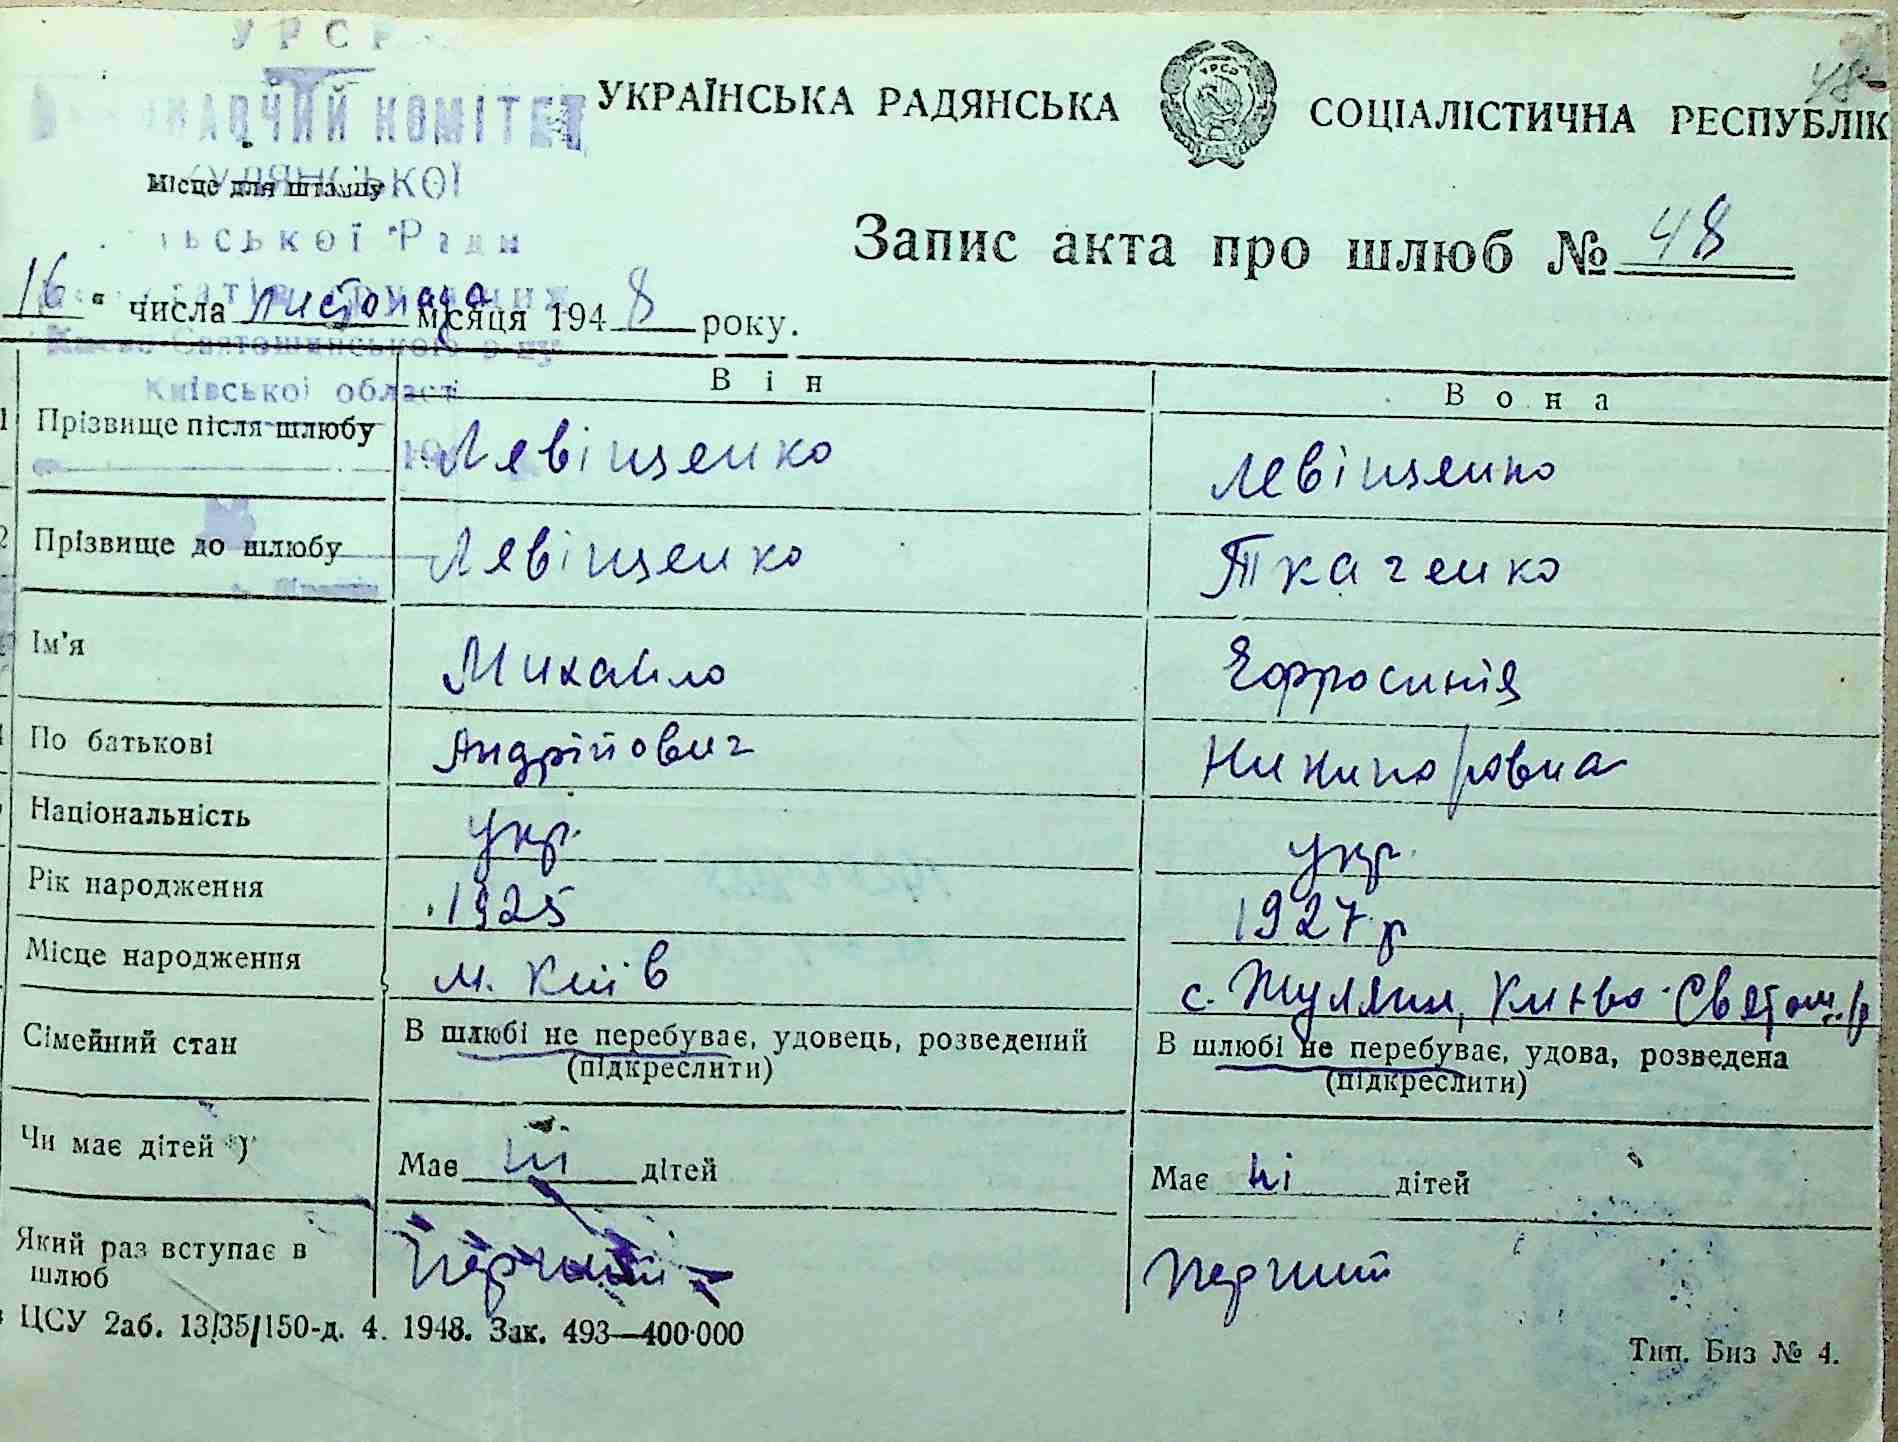 УРСР
КОМІТЕТ
УКРАЇНСЬКА РАДЯНСЬКА СОЦІАЛІСТИЧНА РЕСПУБЛІК
УРСР
48
Місце для штампу
Ради
Запис акта про шлюб № 48
16 " числа листопада місяця 1948 року.
Києво-Святошинського р-ну
Київської області
Він Вона
1 Прізвище після шлюбу Левіщенко Левіщенко
2 Прізвище до шлюбу Левіщенко Ткаченко
Ім'я Михайло Єфросинія
По батькові Андрійович Никипоровна
Національність укр. укр.
Рік народження 1925 1927 р
Місце народження м. Київ с. Жуляни, Києво-Святош. р
Сімейний стан В шлюбі не перебуває, удовець, розведений В шлюбі не перебуває, удова, розведена
(підкреслити) (підкреслити)
Чи має дітей *) Має ні дітей Має ні дітей
Який раз вступає в шлюб перший перший
ЦСУ 2аб. 13/35/150-д. 4. 1948. Зак. 493—400.000
Тип. Биз № 4.